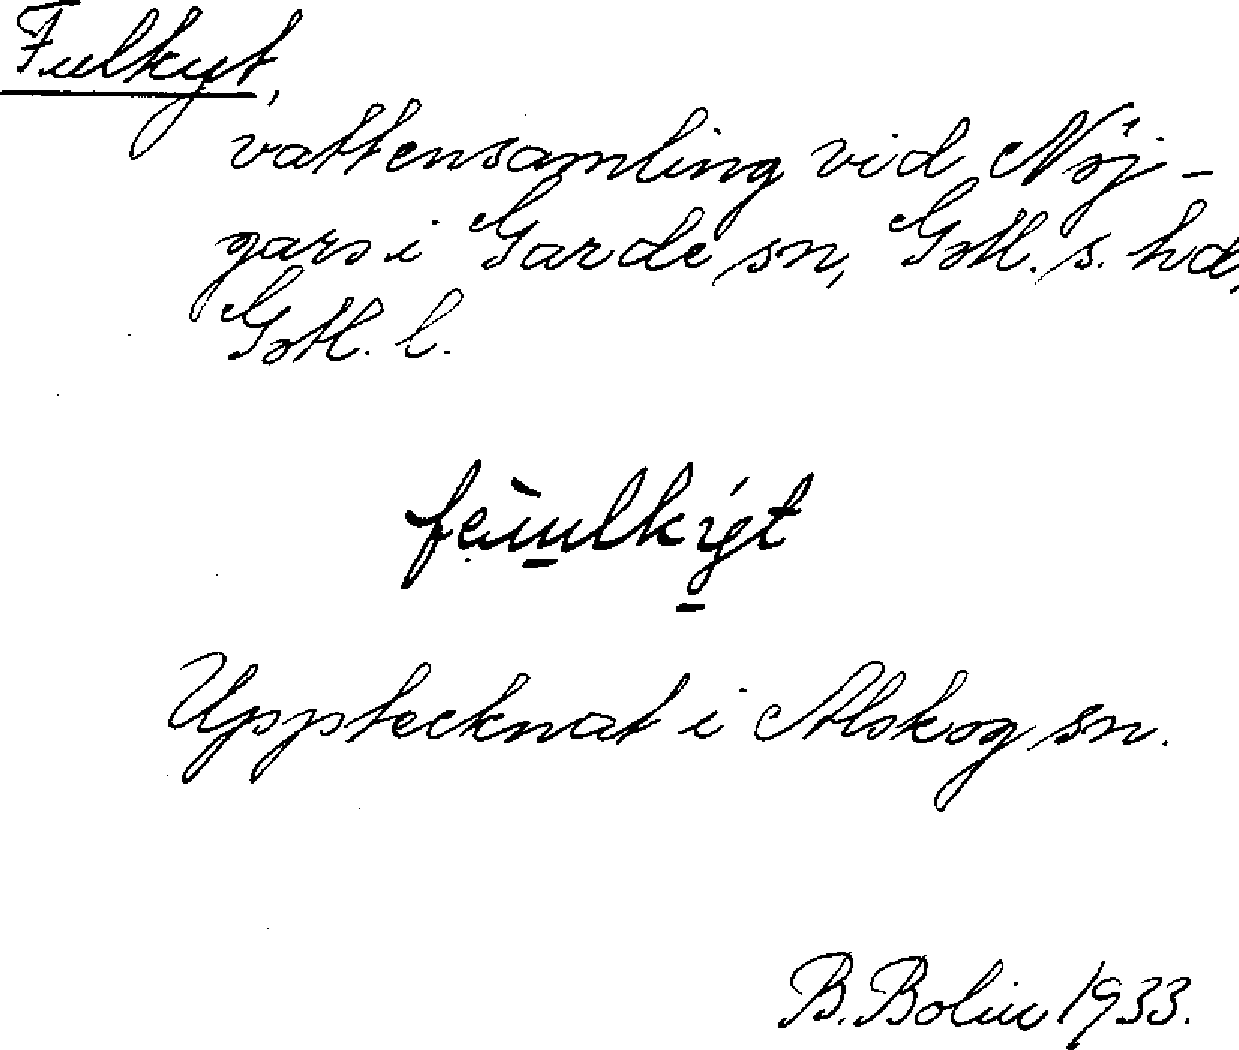 Fulkyt,
vattensamling vid Nöj-
gars i Garde sn, Gotl. s. hd,
Gotl. l.
Upptecknat i Alskog sn.
B. Bolin 1933.